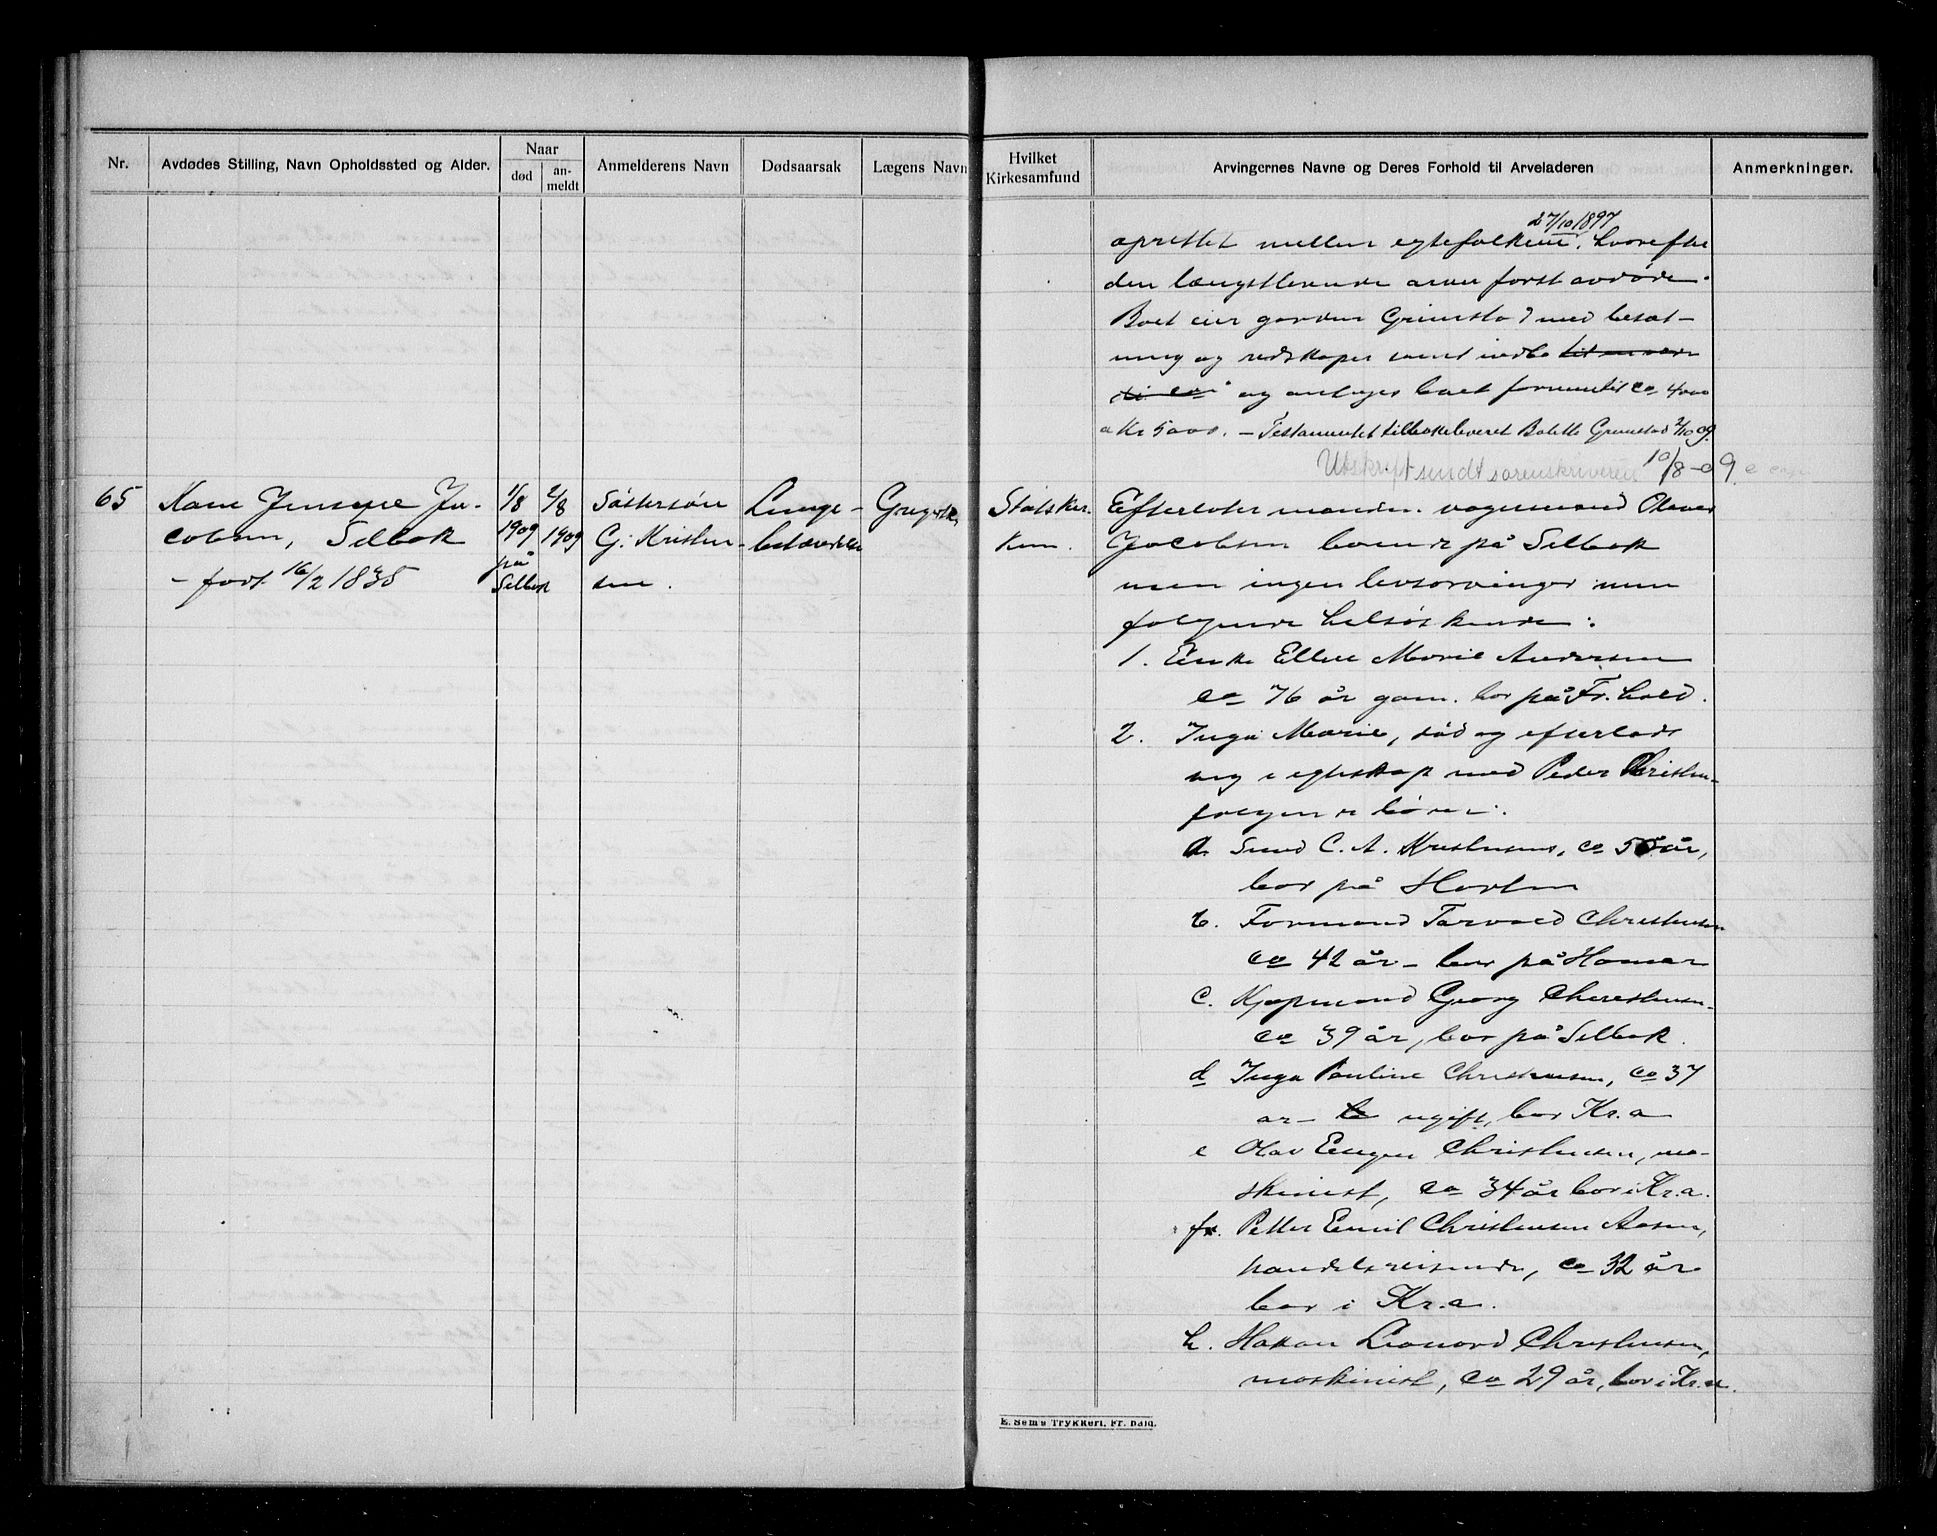 Nr.
Avdødes Stilling, Navn Opholdssted og Alder.
Naar
død
an-
meldt
Anmelderens Navn
Dødsaarsak
Lægens Navn
Hvilket
Kirkesamfund
Arvingernes Navne og Deres Forhold til Arveladeren
Anmerkninger.
27/10 1897
oprettet mellem egtefolkene, hvorefter
den længstlevende arver først avdøde.
Boet eier gården Grimstad med besæt-
ning og redskaper samt indbo til en vær-
di ca og antages boet formue til ca 4000
a Kr 5000. – Testamentet tilbakeleveret Bolette Grimstad 2/10 09.
Utskrift sendt sorenskriveren 10/8-09
65
Jensine Ja-
cobsen, Selbak
- født 16/2 1835
1/8
1909
på
Selbak
2/8
1909
Søstersøn
G. Kristen-
sen.
Lunge-
betændelse
Statskir-
ken.
Efterlater manden vognmand
Jacobsen boende på Selbak
men ingen livsarvinger men
følgende helsøskende:
1. Enke Ellen Marie Andersen
ca 76 år gam. bor på Fr.hald.
2. Inga Marie, død og efterladt
sig i egteskap med Peder Christen-
følgende børn:
a. Smed C. A. Kristensen, ca år,
bor på Horten
b. Formand Torvald Christensen
ca 42 år – bor på Hamar
c. Kjøpmand Georg Christensen
ca 39 år, bor på Selbak.
d Inga Pauline Christensen, ca 37
år – ugift, bor Kr.a
e Olav Eugen Christensen, ma-
skinist, ca 34 år bor i Kr.a.
f. Petter Emil Christensen Aasen,
handelsreisende, ca 32 år
bor i Kr.a.
h. Håkon Leonard Christensen,
maskinist, ca 29 år, bor i Kr.a.
E. Sems Trykkeri, Fr.hald.